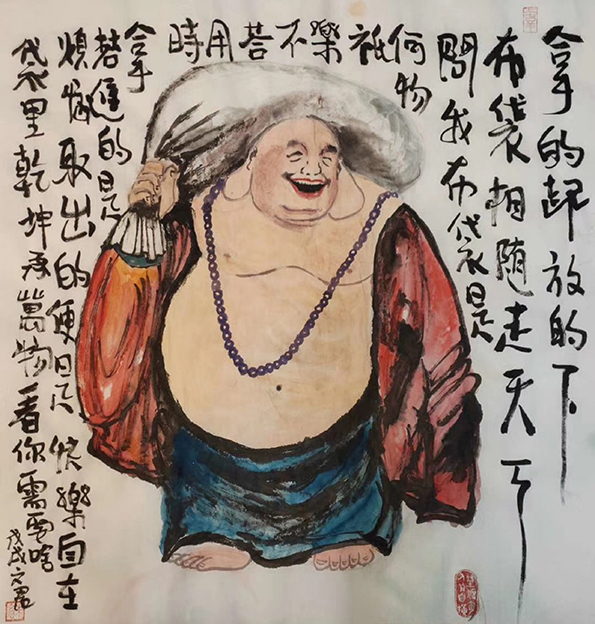 拿的起放的下
布袋相随走天下
問我布袋是
何物
祇樂不荅用時
拿
進的是
煩惱取出的便是快樂自在
袋里乾坤承萬物看你需要啥
戊戌文君